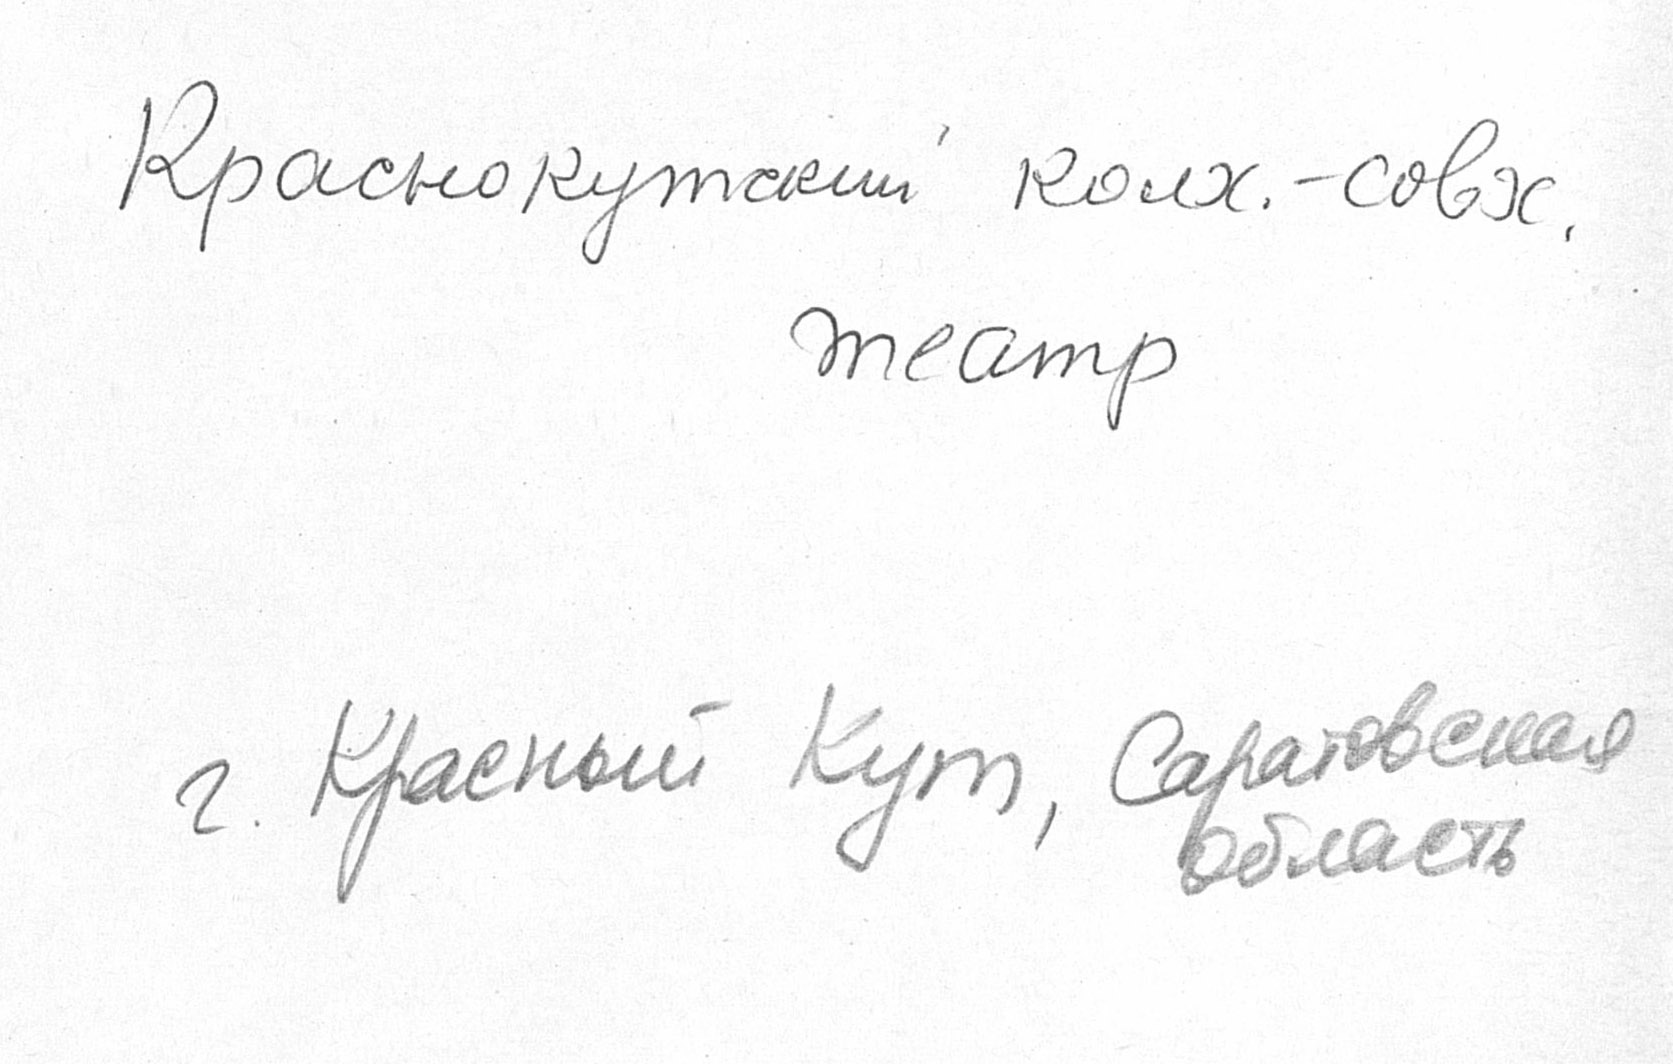 Краснокутский колх.-совх.
театр
г. Красный Кут, Саратовская
область